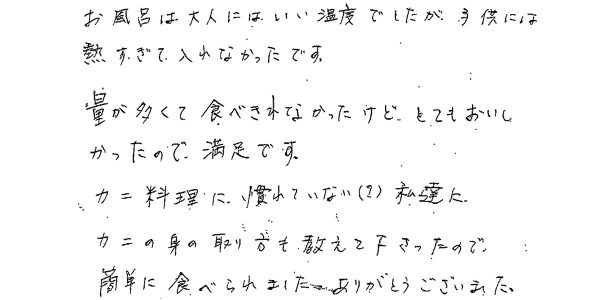 お風呂は大人にはいい温度でしたが、子供には
熱すぎて入れなかったです。
量が多くて食べきれなかったけど、とてもおいし
かったので、満足です。
カニ料理に、慣れていない(?)私達に、
カニの身の取り方も教えて下さったので、
簡単に食べられました。ありがとうございました。